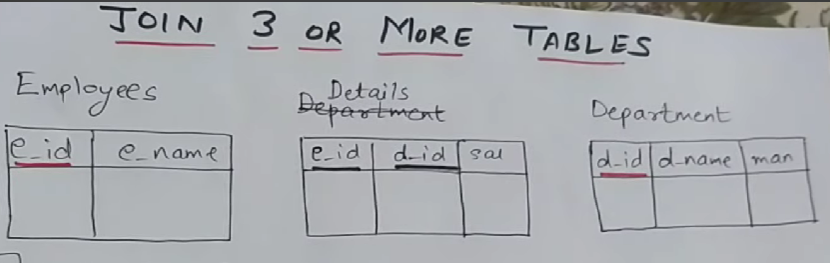 JOIN 3 OR MORE TABLES
Employees
e_id e_name
Details
Department
e_id d_id sal
Department
d_id d_name man